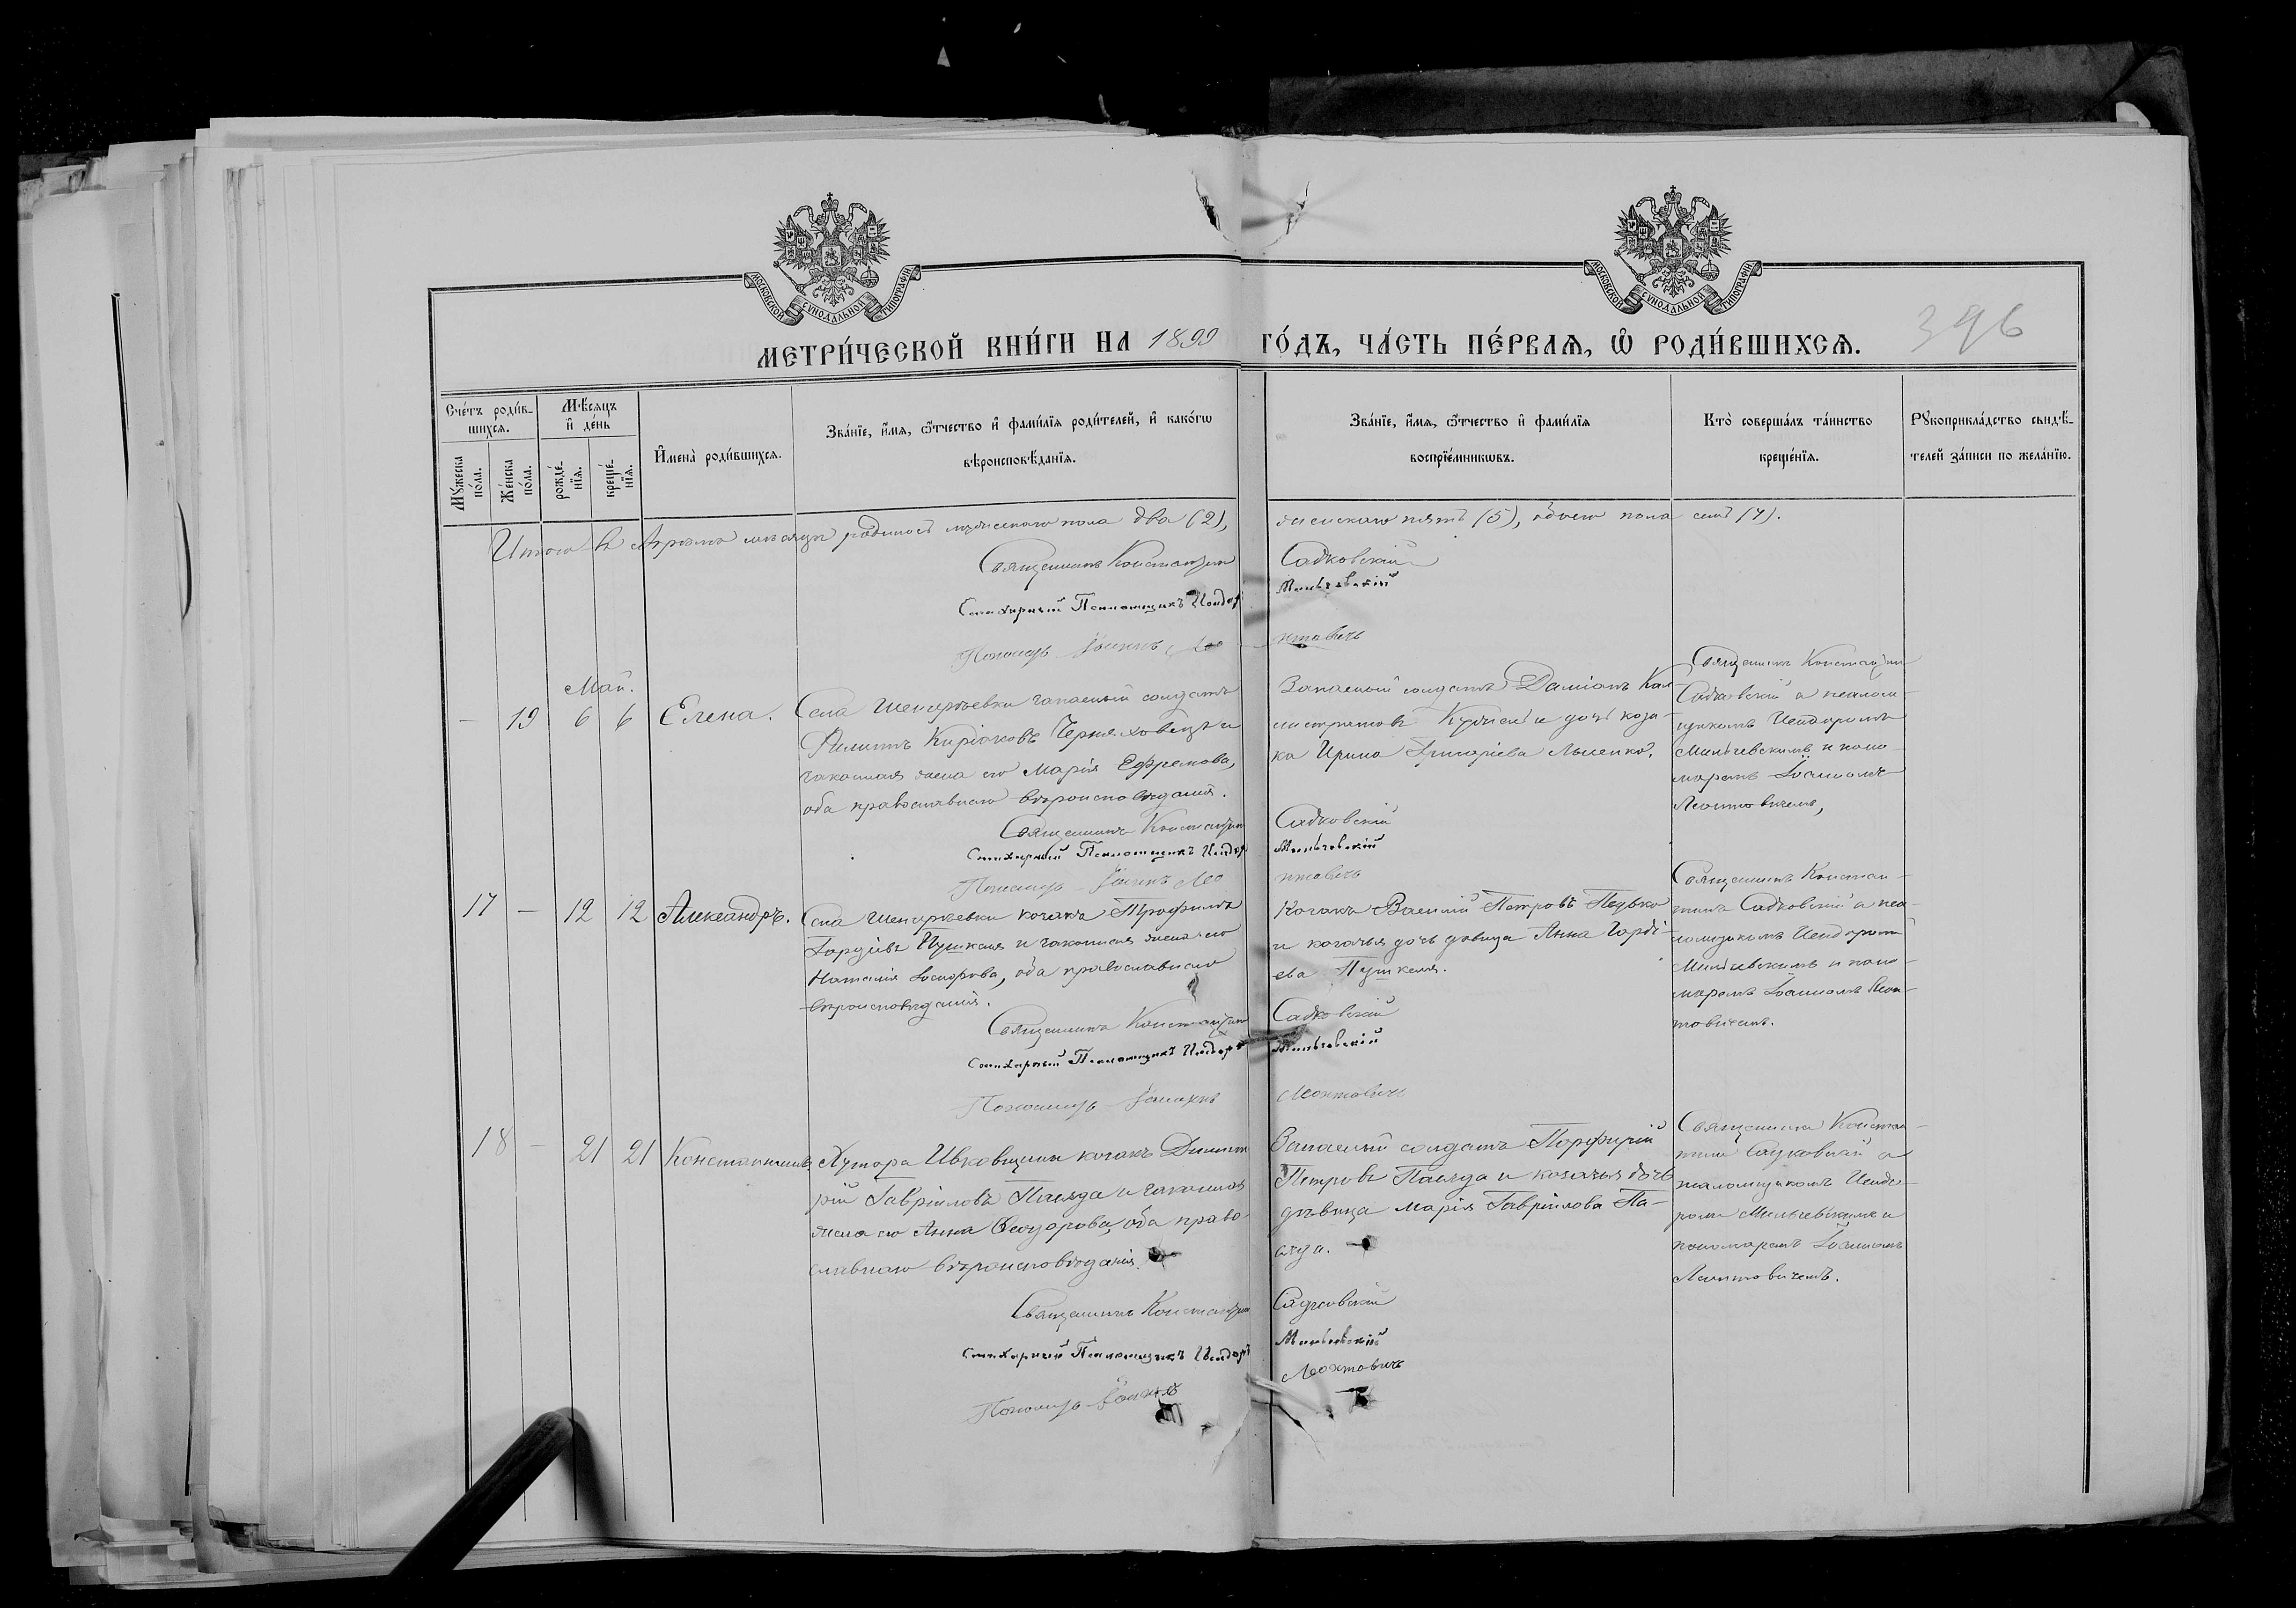 МОСКОВСКОЙ СѴНОДАЛЬНОЙ ТИПОГРАФІИ
МОСКОВСКОЙ СѴНОДАЛЬНОЙ ТИПОГРАФІИ
МЕТРИ́ЧЕСКОЙ КНИ́ГИ НА 1899 ГО́ДЪ, ЧА́СТЬ ПЕ́РВАЯ, Ѡ҆ РОДИ́ВШИХСЯ.
396
Сче́тъ роди́вшихся.
Мꙋ́жеска по́ла.
Же́нска по́ла.
Мѣ́сяцъ и҆ де́нь
рожде́нїя.
креще́нїя.
И҆мена̀ роди́вшихся.
Зва́нїе, и҆́мя, ѻ҆́тчество и҆ фами́лїя роди́телей, и҆ како́гѡ
вѣроисповѣ́данїя.
Зва́нїе, и҆́мя, ѻ҆́тчество и҆ фами́лїя
воспрїе́мникѡвъ.
Кто̀ соверша́лъ та́инство
креще́нїя.
Рꙋкоприкла́дство свидѣ́-
телей за́писи по жела́нїю.
Итого въ Апрѣлѣ мѣсяцѣ родилось мужескаго пола два (2), женскаго пять (5), обоего пола семь (7).
Священникъ Константин Садковскій
Стихарный Псаломщикъ Исидор Мильчевскій
Пономарь Іоаннъ Леонтовичъ
Май.
— 19 6 6 Елена.
Села запасный солдатъ
Филиппъ Киріаковъ Черняховецъ и
законная жена его Марія Ефремова,
оба православнаго вѣроисповѣданія.
Запасный солдатъ Даміанъ Кал-
листратовъ и дочь коза-
ка Ирина Григоріева Лысенко.
Священникъ Константин
Садковскій съ псалом-
щикомъ Исидоромъ
Мильчевскимъ и поно-
маремъ Іоанномъ
Леонтовичемъ,
Священникъ Константин Садковскій
Стихарный Псаломщикъ Исидор Мильчевскій
Пономарь Іоаннъ Леонтовичъ
17 — 12 12 Александръ.
Села козакъ Трофимъ
Гордіевъ Пушкаля и законная жена его
Наталія, оба православнаго
вѣроисповѣданія.
Козакъ Василій Петровъ
и козачья дочь девица Анна Горді-
ева Пушкаля.
Священникъ Констан-
тинъ Садковскій съ пса-
ломщикомъ Исидоромъ
Мильчевскимъ и поно-
маремъ Іоанномъ Леон-
товичемъ.
Священникъ Константин Садковскій
Стихарный Псаломщикъ Исидоръ Мильчевскій
Пономарь Іоаннъ Леонтовичъ
18 — 21 21 Константинъ
Хутора Ивковщины козакъ Димит-
рій Гавріиловъ Паляда и законная
жена его Анна Ѳеодорова, оба право-
славнаго вѣроисповѣданія.
Запасный солдатъ Порфирій
Петровъ Паляда и козачья дочь
дѣвица Марія Гавріилова Па-
ляда.
Священникъ Констан-
тинъ Садковскій съ
псаломщикомъ Исидо-
ромъ Мильчевскимъ и
пономаремъ Іоанномъ
Леонтовичемъ.
Священникъ Константин Садковскій
Стихарный Псаломщикъ Исидоръ Мильчевскій
Пономарь Іоаннъ Леонтовичъ